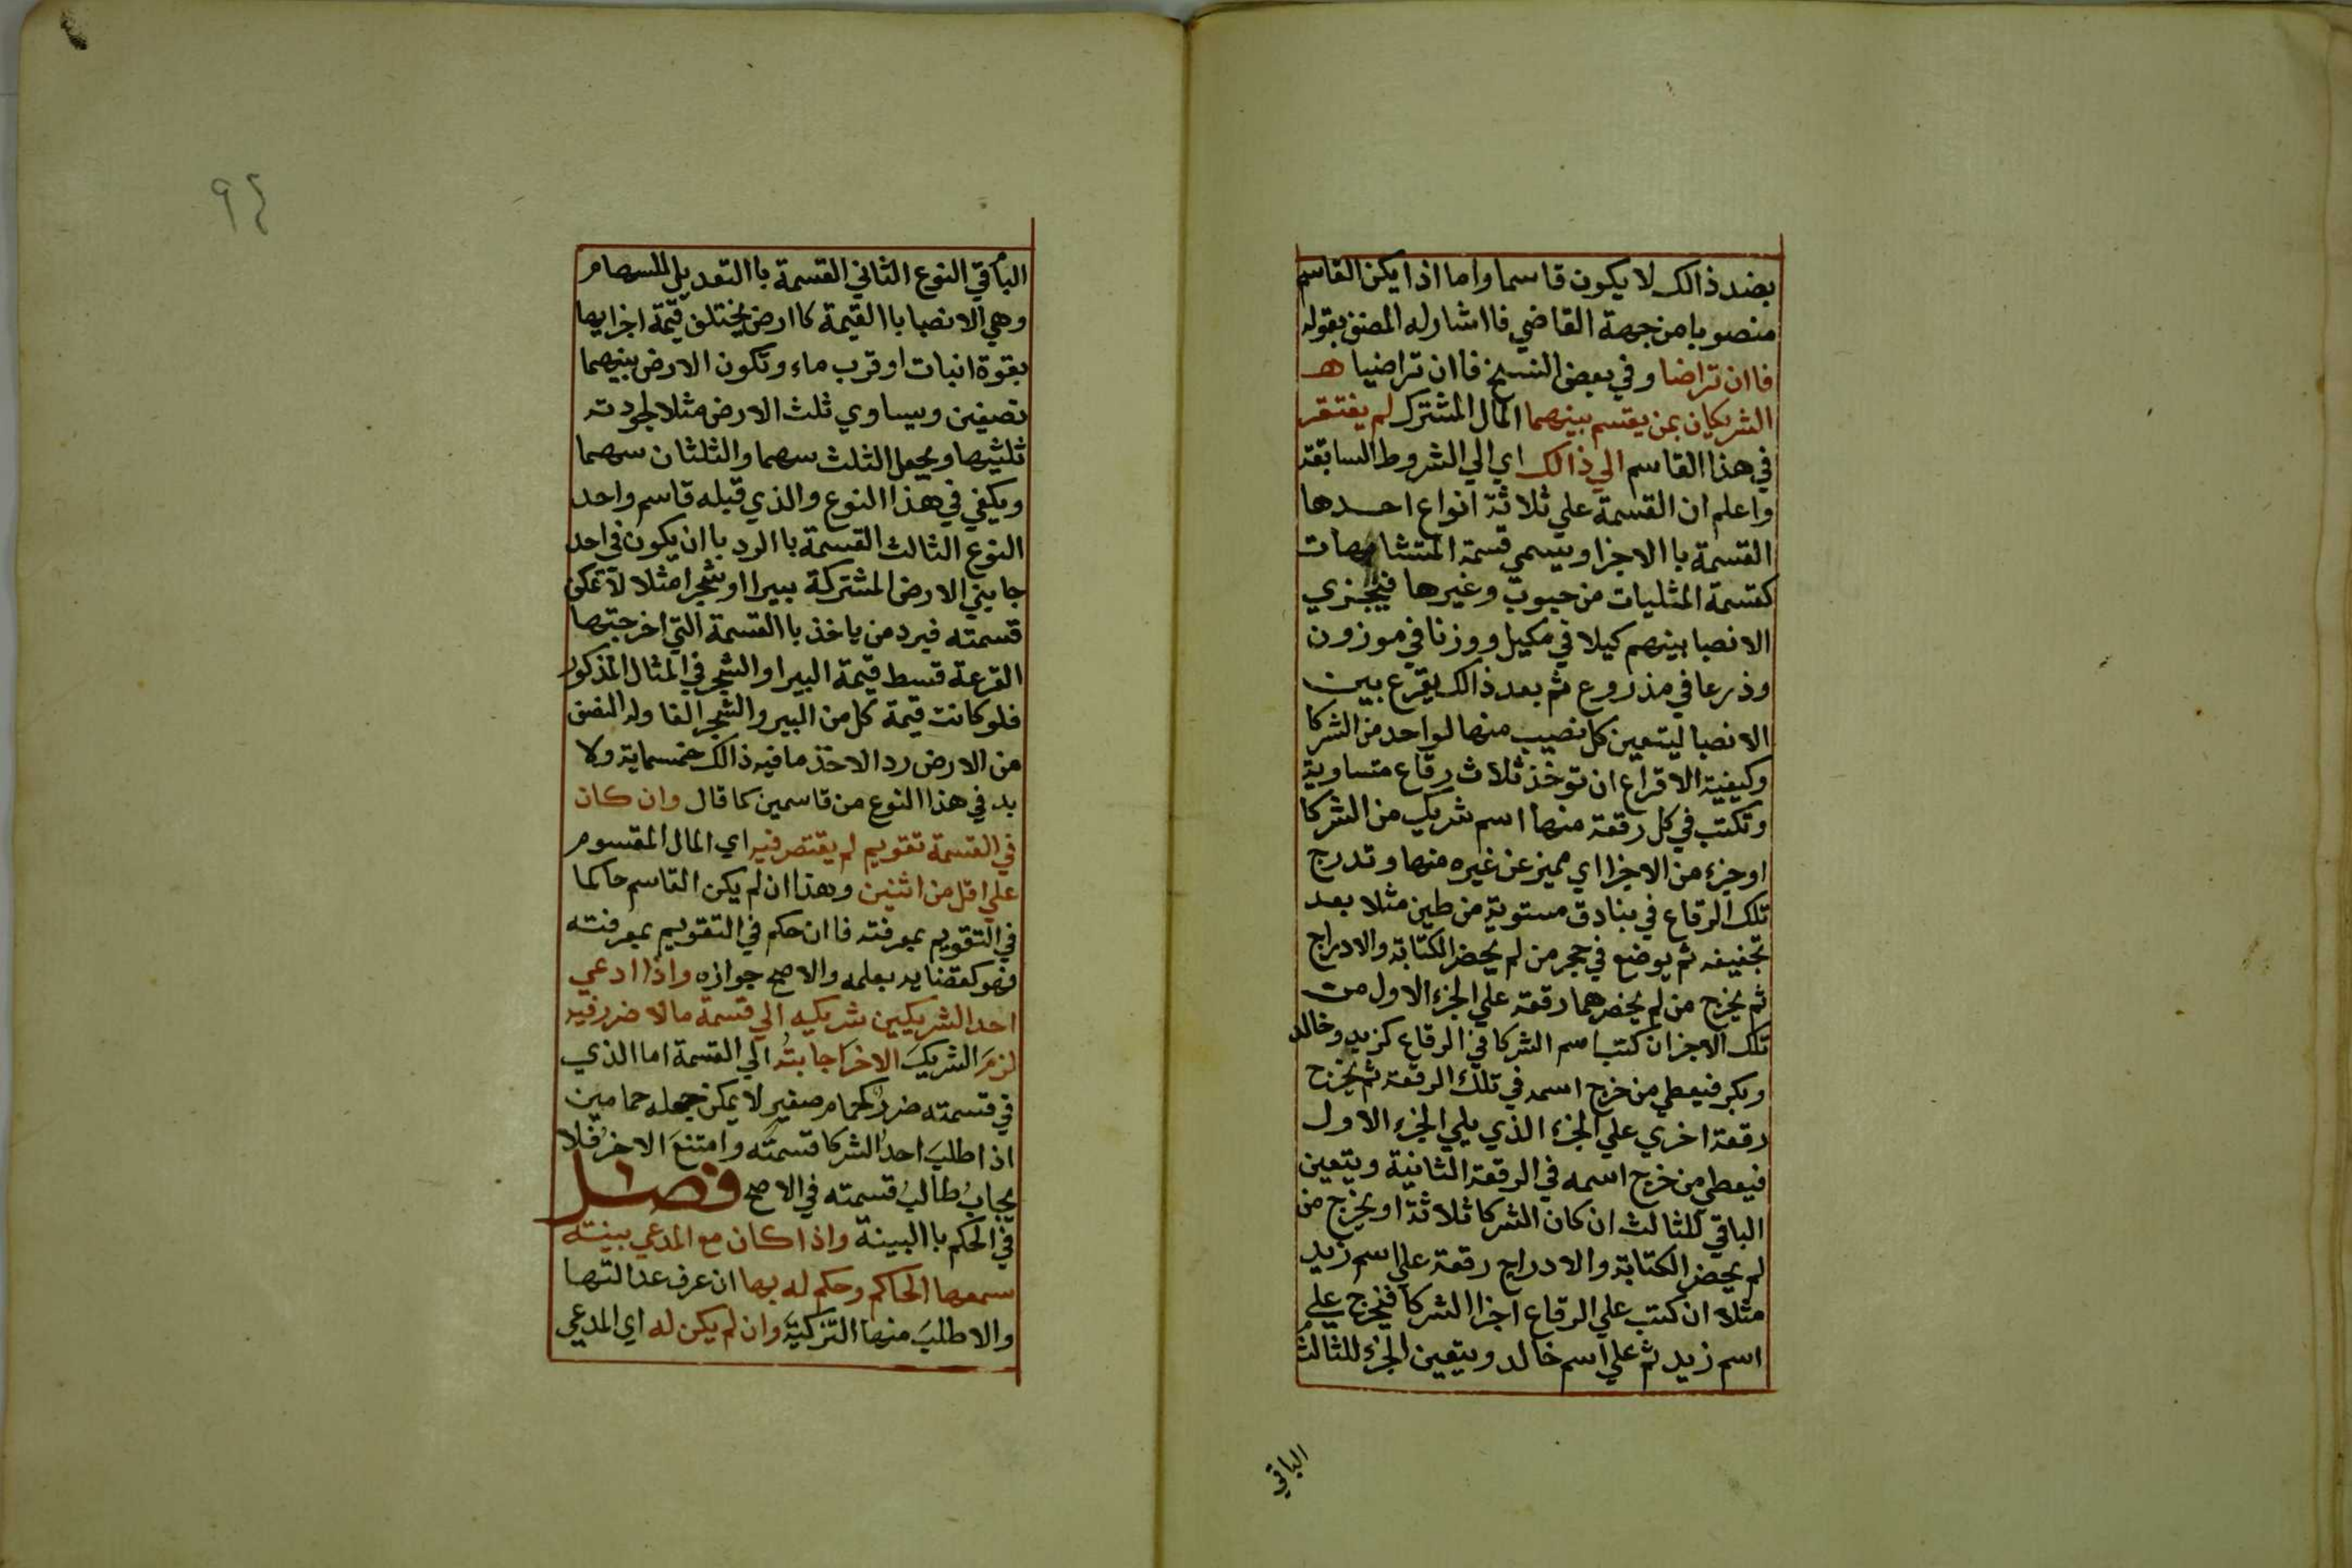 بضد ذالك لا يكون قاسما واما اذا يكن القاسم
منصوبا من جهة القاضي فااشار له المصنف بقوله
فاان تراضا وفي بعض النسخ فاان تراضيا هـ
الشريكان بمن يقتسم بينهما المال المشترك لم يفتقر
في هذا القاسم الي ذالك اي الي الشروط السابقة
واعلم ان القسمة علي ثلاثة انواع احدها
القسمة باالاجزا ويسمي قسمة المتشابهات
كقسمة المثليات من حبوب وغيرها فيجزي
الانصبا بينهم كيلا في مكيل ووزنا في موزون
وذرعا في مذروع ثم بعد ذالك يقرع بين
الانصبا ليتعين كل نصيب منها لواحد من الشركا
وكيفية الاقراع ان توخذ ثلاث رقاع متساوية
وتكتب في كل رقعة منها اسم شريك من الشركا
اوجزء من الاجزا اي مميز عن غيره منها وتدرج
تلك الرقاع في بنادق مستوية من طين مثلا بعد
تجفيفه ثم يوضع في حجر من لم يحضر الكتابة والادراج
ثم يخرج من لم يحضرهما رقعة علي الجزء الاول من
تلك الاجزا ان كتب اسم الشركا في الرقاع كزيد وخالد
وبكر فيعطي من خرج اسمه في تلك الرقعة ثم يخرج
رقعة اخري علي الجزء الذي يلي الجزء الاول
فيعطي من خرج اسمه في الرقعة الثانية ويتعين
الباقي للثالث ان كان الشركا ثلاثة او يخرج من
لم يحضر الكتابة والادراج رقعة علي اسم زيد
مثلا ان كتب علي الرقاع اجزا الشركا فيخرج علي
اسم زيد ثم علي اسم خالد ويتعين الجزء للثالث
الباقي
٩٤
الباقي النوع الثاني القسمة باالتعديل للسهام
وهي الانصبا باالقيمة كاارض يختلف قيمة اجزايها
بقوة انبات او قرب ماء وتكون الارض بينهما
نصفين ويساوي ثلث الارض مثلا لجودته
ثلثيها ويجعل الثلث سهما والثلثان سهما
ويكفي في هذا النوع والذي قبله قاسم واحد
النوع الثالث القسمة باالرد باان يكون في احد
جانبي الارض المشتركة بيرا او شجرا مثلا لا تمكن
قسمته فيرد من ياخذ باالقسمة التي اخرجتها
القرعة قسط قيمة البير او الشجر في المثال المذكور
فلو كانت قيمة كل من البير والشجر الفا وله النصف
من الارض رد الاخذ ما فيه ذالك خمسماية ولا
بد في هذا النوع من قاسمين كما قال وان كان
في القسمة تقويم لم يقتصر فيه اي المال المقسوم
علي اقل من اثنين وهذا ان لم يكن القاسم حاكما
في التقويم بمعرفته فاان حكم في التقويم بمعرفته
فهو كقضايه بعلمه والاصح جوازه واذا ادعي
احد الشريكين شريكه الي قسمة مالا ضرر فيه
لزم الشريك الاخر اجابته الي القسمة اما الذي
في قسمته ضرر كحمام صغير لا يمكن جعله حمامين
اذا طلب احد الشركا قسمته وامتنع الاخر فلا
يجاب طالب قسمته في الاصح فصل
في الحكم باالبينة واذا كان مع المدعي بينته
سمعها الحاكم وحكم له بها ان عرف عدالتها
والا طلب منها التزكية وان لم يكن له اي المدعي